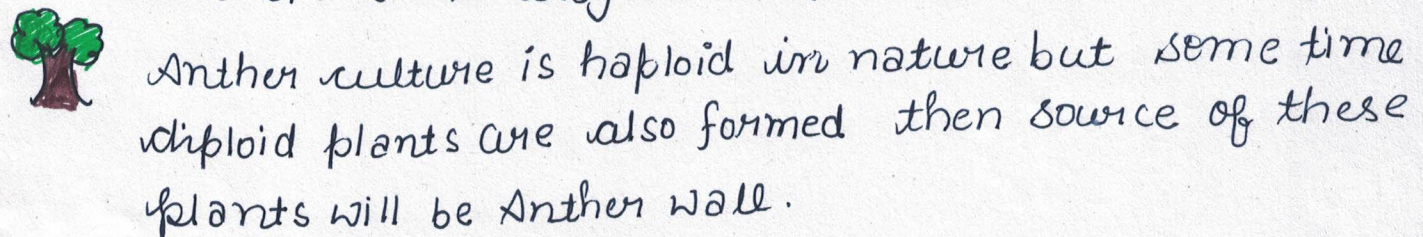 Anther culture is haploid in nature but some time
diploid plants are also formed then source of these
plants will be Anther wall.